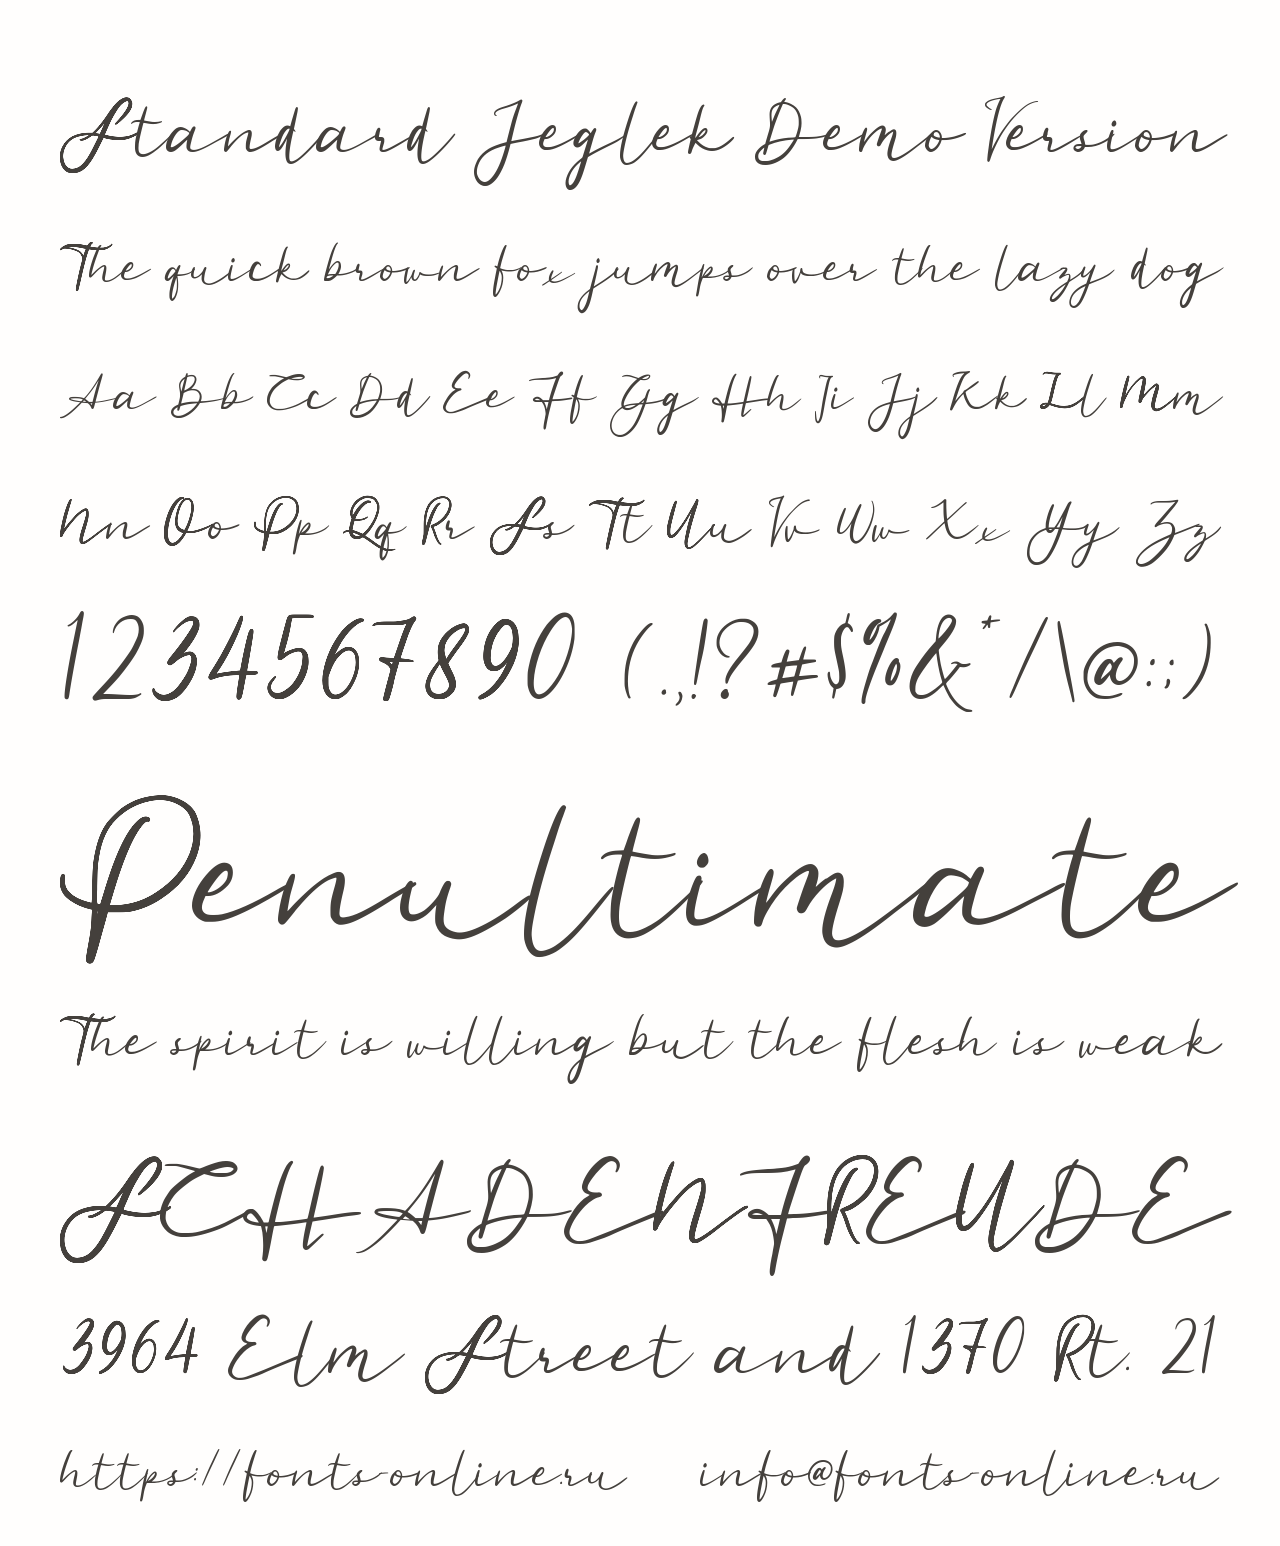 Standard Jeglek Demo Version
The quick brown fox jumps over the lazy dog
Aa Bb Cc Dd Ee Ff Gg Hh Ii Jj Kk Ll Mm
Nn Oo Pp Qq Rr Ss Tt Uu Vv Ww Xx Yy Zz
1234567890 (.,!?#$%&*/\@:;)
Penultimate
The spirit is willing but the flesh is weak
SCHADENFREUDE
3964 Elm Street and 1370 Rt. 21
https://fonts-online.ru info@fonts-online.ru